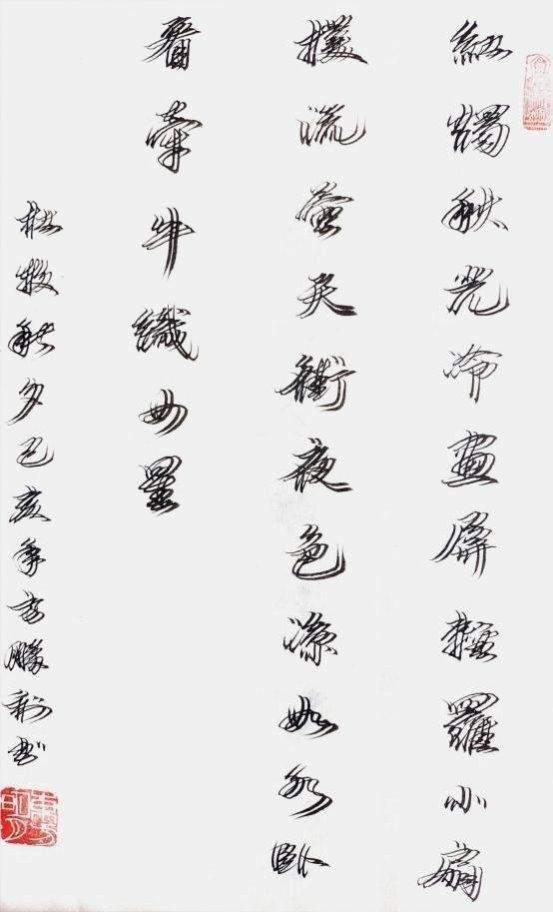 紅燭秋光冷畫屏輕羅小扇
撲流螢天街夜色涼如水臥
看牽牛織女星
杜牧秋夕己亥年書